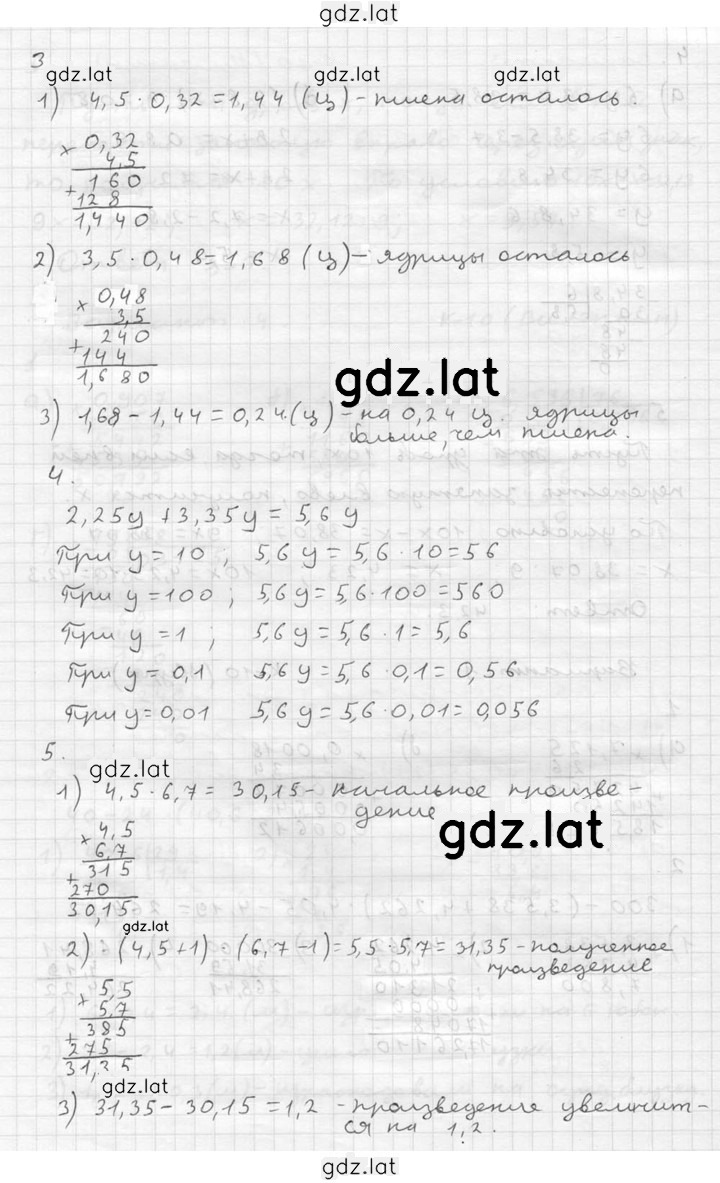 gdz.lat
3
gdz.lat gdz.lat
1) 4,5 · 0,32 = 1,44 (ц) - пшена осталось.
× 0,32
4,5
+ 160
128
1,440
2) 3,5 · 0,48 = 1,68 (ц) - ядрицы осталось
× 0,48
3,5
+ 240
144
1,680
gdz.lat
3) 1,68 - 1,44 = 0,24 (ц) - на 0,24 ц. ядрицы
больше, чем пшена.
4.
2,25y + 3,35y = 5,6 y
При y = 10 ; 5,6 y = 5,6 · 10 = 56
При y = 100 ; 5,6 y = 5,6 · 100 = 560
При y = 1 ; 5,6 y = 5,6 · 1 = 5,6
При y = 0,1 5,6 y = 5,6 · 0,1 = 0,56
При y = 0,01 5,6 y = 5,6 · 0,01 = 0,056
5.
gdz.lat
1) 4,5 · 6,7 = 30,15 - начальное произве-
дение
× 4,5
6,7
+ 315
270
30,15
gdz.lat
gdz.lat
2) (4,5 + 1) · (6,7 - 1) = 5,5 · 5,7 = 31,35 - полученное
произведение
× 5,5
5,7
+ 385
275
31,35
gdz.lat
3) 31,35 - 30,15 = 1,2 - произведение увеличит-
ся на 1,2.
gdz.lat